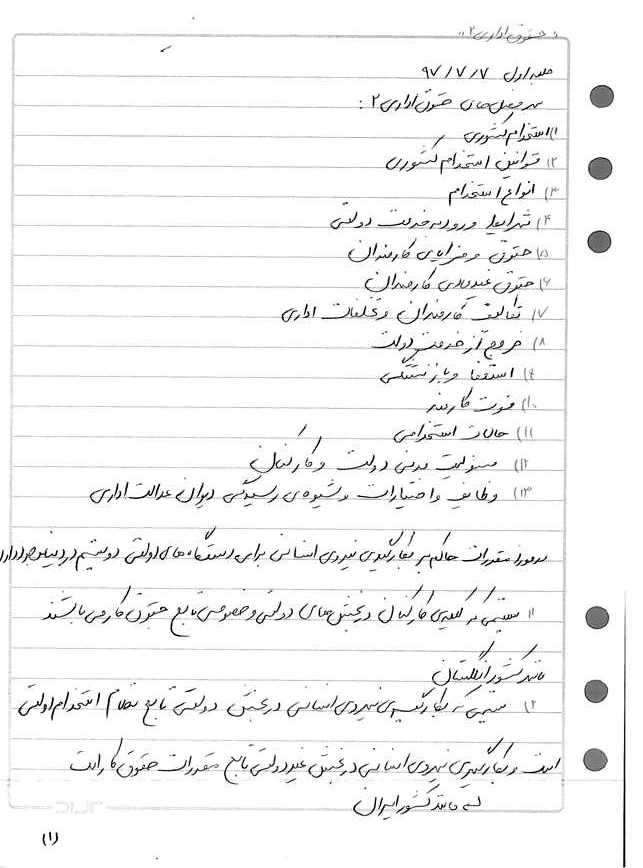 « حقوق اداری ۲ »
جلسه اول ۹۷/۷/۷
سرفصل‌های حقوق اداری ۲ :
۱) استخدام کشوری
۲) قوانین استخدام کشوری
۳) انواع استخدام
۴) شرایط ورود به خدمت دولتی
۵) حقوق و مزایای کارمندان
۶) حقوق غیرمادی کارمندان
۷) تکالیف کارمندان و تخلفات اداری
۸) خروج از خدمت دولت
۹) استعفا و بازنشستگی
۱۰) فوت کارمند
۱۱) حالات استخدامی
۱۲) مسئولیت مدنی دولت و کارکنان
۱۳) وظایف و اختیارات و شیوه‌ی رسیدگی دیوان عدالت اداری
در مورد مقررات حاکم بر بکارگیری نیروی انسانی برای دستگاه‌های دولتی دو سیستم در دنیا وجود دارد
۱) سیستمی که کلیه‌ی کارکنان در بخش‌های دولتی و خصوصی تابع حقوق کار می باشند
مانند کشور انگلستان
۲) سیستمی که بکارگیری نیروی انسانی در بخش دولتی تابع نظام استخدام دولتی
است و بکارگیری نیروی انسانی در بخش غیردولتی تابع مقررات حقوق کار است
که مانند کشور ایران
(۱)